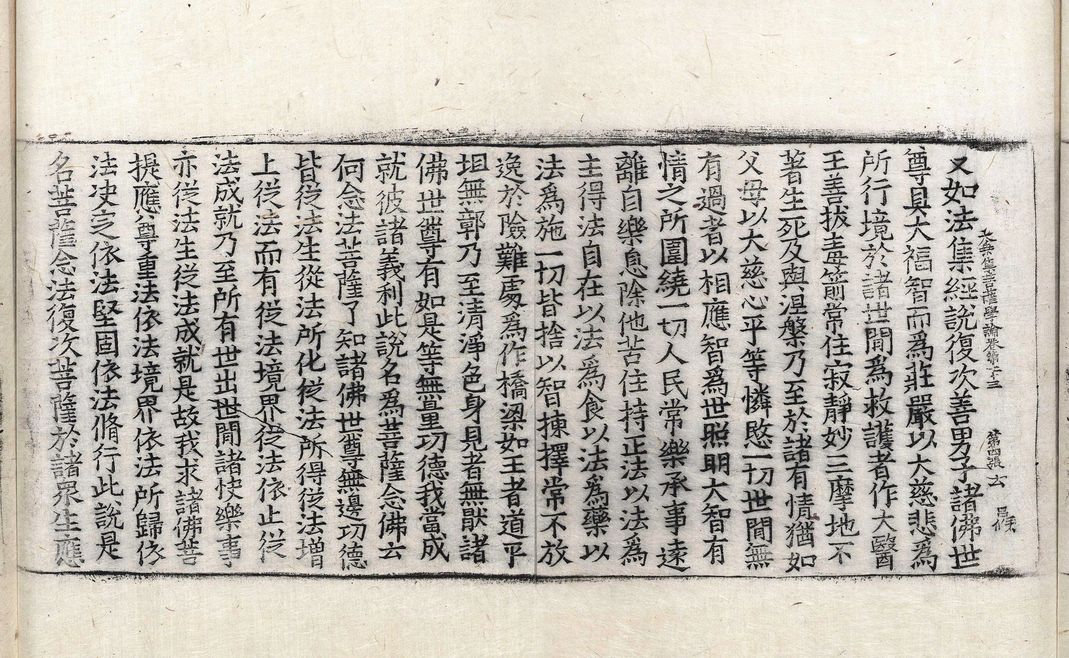 大乘集菩薩學論卷第十三 第四張 云
又如法集經說復次善男子諸佛世
尊具大福智而為莊嚴以大慈悲為
所行境於諸世閒為救護者作大醫
王善拔毒箭常住寂靜妙三摩地不
著生死及與涅槃乃至於諸有情猶如
父母以大慈心平等憐愍一切世閒無
有過者以相應智為世照明大智有
情之所圍繞一切人民常樂承事遠
離自樂息除他苦住持正法以法為
主得法自在以法為食以法為藥以
法為施一切皆捨以智揀擇常不放
逸於險難處為作橋梁如王者道平
坦無郭乃至清淨色身見者無猒諸
佛世尊有如是等無量功德我當成
就彼諸義利此說名為菩薩念佛云
何念法菩薩了知諸佛世尊無邊功德
皆從法生從法所化從法所得從法增
上從法而有從法境界從法依止從
法成就乃至所有世出世閒諸快樂事
亦從法生從法成就是故我求諸佛菩
提應尊重法依法境界依法所歸依
法决定依法堅固依法脩行此說是
名菩薩念法復次菩薩於諸眾生應